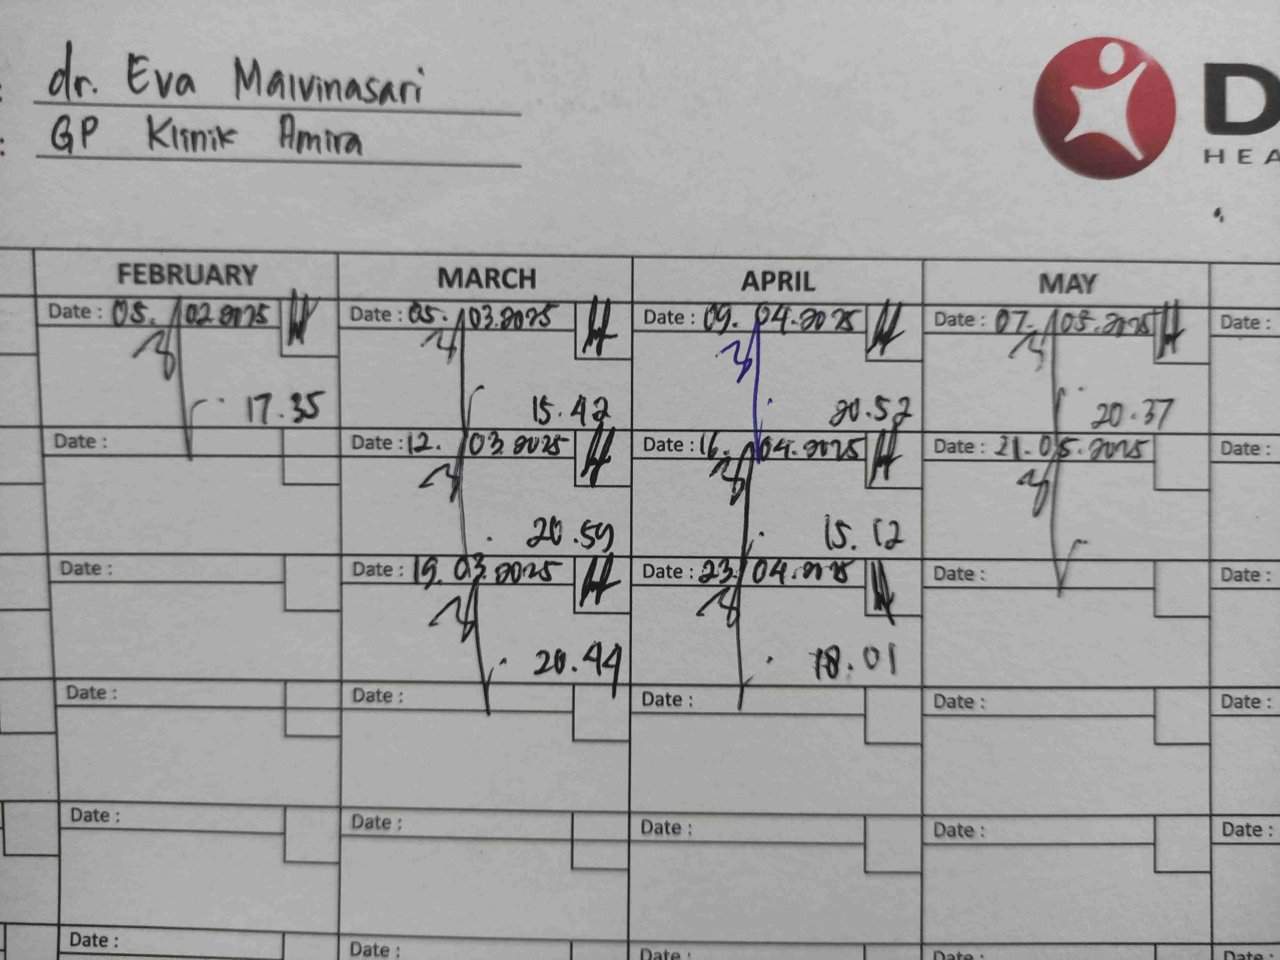 : dr. Eva Malvinasari
: GP Klinik Amira
D
HEA
FEBRUARY MARCH APRIL MAY
Date : 05. 02.2025 Date : 05. 03.2025 Date : 09. 04.2025 Date : 07. 05.2025 Date :
17.35 15.42 20.52 20.37
Date : Date : 12. 03.2025 Date : 16. 04.2025 Date : 21.05.2025 Date :
20.59 15.12
Date : Date : 19.03.2025 Date : 23. 04.2025 Date : Date :
20.44 18.01
Date : Date : Date : Date : Date :
Date : Date : Date : Date : Date :
Date : Date : Date : Date :